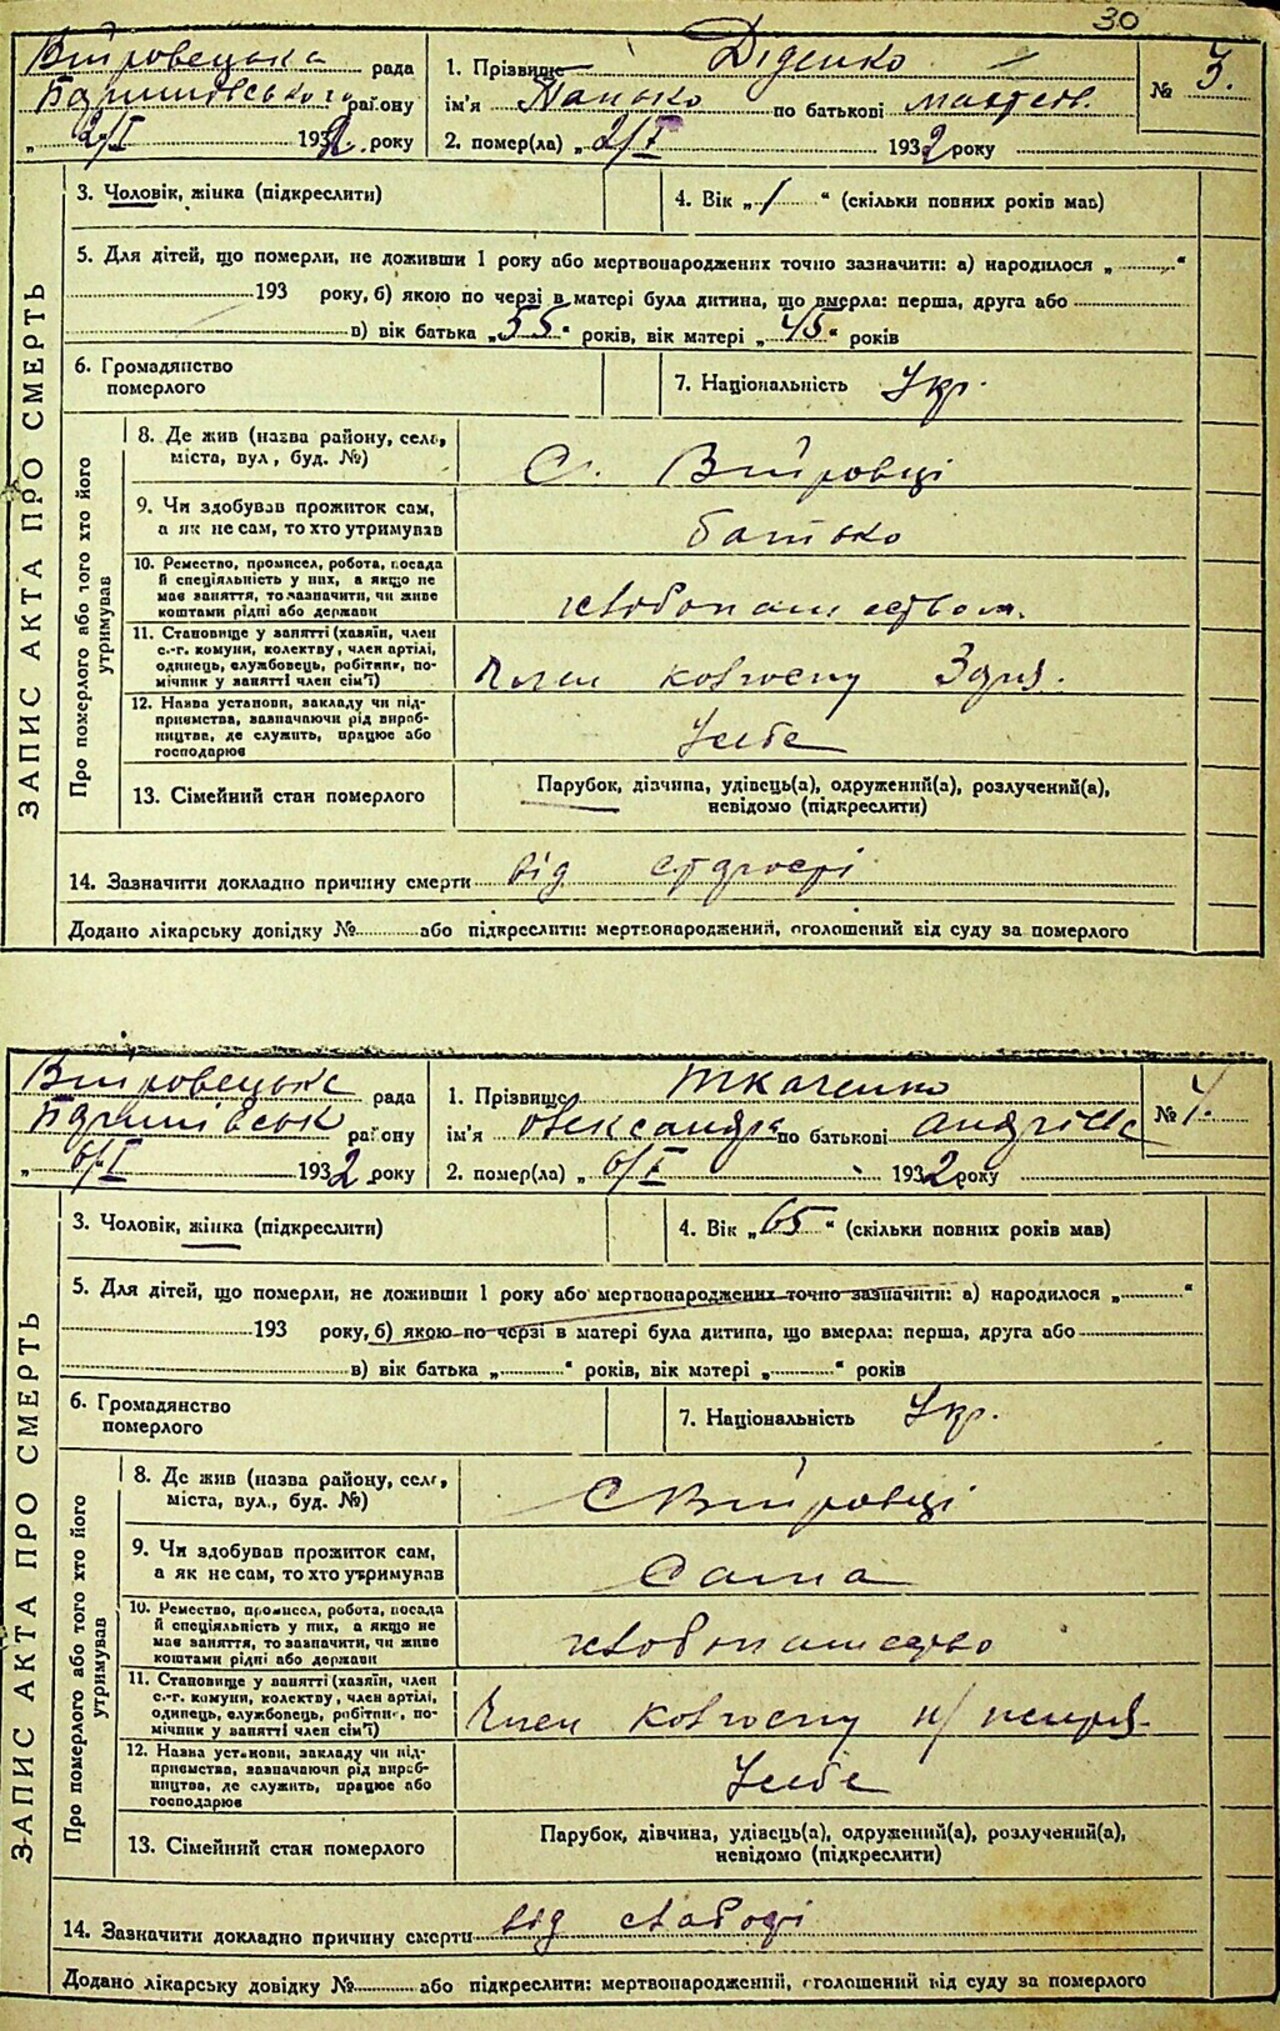 30
Війтовецька рада
Баришівського району
„ 2/I 1932. року
1. Прізвище Діденко
ім'я Панько по батькові
2. помер(ла) „ 2/I 1932 року
№ 3.
ЗАПИС АКТА ПРО СМЕРТЬ
3. Чоловік, жінка (підкреслити)
4. Вік „ 1 “ (скільки повних років мав)
5. Для дітей, що померли, не доживши 1 року або мертвонароджених точно зазначити: а) народилося „ “
193 року, б) якою по черзі в матері була дитина, що вмерла: перша, друга або
в) вік батька „ 55 “ років, вік матері „ 45 “ років
6. Громадянство
померлого
7. Національність Укр.
Про померлого або того хто його
утримував
8. Де жив (назва району, село,
міста, вул, буд. №)
С.
9. Чи здобував прожиток сам,
а як не сам, то хто утримував
батько
10. Ремество, промисел, робота, посада
й спеціяльність у них, а якщо не
має заняття, то зазначити, чи живе
коштами рідні або держави
хлібопашеством.
11. Становище у занятті (хазяїн, член
с.-г. комуни, колективу, член артілі,
одинець, службовець, робітник, по-
мічник у занятті член сім'ї)
Член колгоспу
12. Назва установи, закладу чи під-
приємства, зазначаючи рід вироб-
ництва, де служить, працює або
господарює
У себе
13. Сімейний стан померлого
Парубок, дівчина, удівець(а), одружений(а), розлучений(а),
невідомо (підкреслити)
14. Зазначити докладно причину смерти від старості
Додано лікарську довідку № або підкреслити: мертвонароджений, оголошений від суду за померлого
рада
Баришівськ району
„ 6/I 1932 року
1. Прізвище Ткаченко
ім'я Олександра по батькові Андріїв
2. помер(ла) „ 6/I 1932 року
№ 4.
ЗАПИС АКТА ПРО СМЕРТЬ
3. Чоловік, жінка (підкреслити)
4. Вік „ 65 “ (скільки повних років мав)
5. Для дітей, що померли, не доживши 1 року або мертвонароджених точно зазначити: а) народилося „ “
193 року, б) якою по черзі в матері була дитина, що вмерла: перша, друга або
в) вік батька „ “ років, вік матері „ “ років
6. Громадянство
померлого
7. Національність Укр.
Про померлого або того хто його
утримував
8. Де жив (назва району, село,
міста, вул., буд. №)
С
9. Чи здобував прожиток сам,
а як не сам, то хто утримував
Сама
10. Ремество, промисел, робота, посада
й спеціяльність у них, а якщо не
має заняття, то зазначити, чи живе
коштами рідні або держави
хлібопашество
11. Становище у занятті (хазяїн, член
с.-г. комуни, колективу, член артілі,
одинець, службовець, робітник, по-
мічник у занятті член сім'ї)
Член колгоспу
12. Назва установи, закладу чи під-
приємства, зазначаючи рід вироб-
ництва, де служить, працює або
господарює
У себе
13. Сімейний стан померлого
Парубок, дівчина, удівець(а), одружений(а), розлучений(а),
невідомо (підкреслити)
14. Зазначити докладно причину смерти від слабості
Додано лікарську довідку № або підкреслити: мертвонароджений, оголошений від суду за померлого